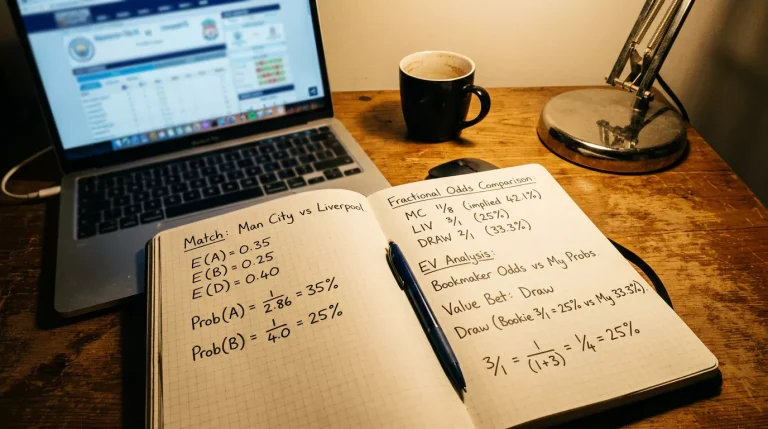 Match: Man City vs Liverpool
E(A) = 0.35
E(B) = 0.25
E(D) = 0.40
Prob(A) = 1/2.86 = 35%
Prob(B) = 1/4.0 = 25%
Fractional Odds Comparison:
MC 11/8 (implied 42.1%)
LIV 3/1 (25%)
DRAW 2/1 (33.3%)
EV Analysis:
Bookmaker Odds vs My Probs.
Value Bet: Draw
Draw (Bookie 3/1 = 25% vs My 33.3%).
3/1 = 1/(1+3) = 1/4 = 25%